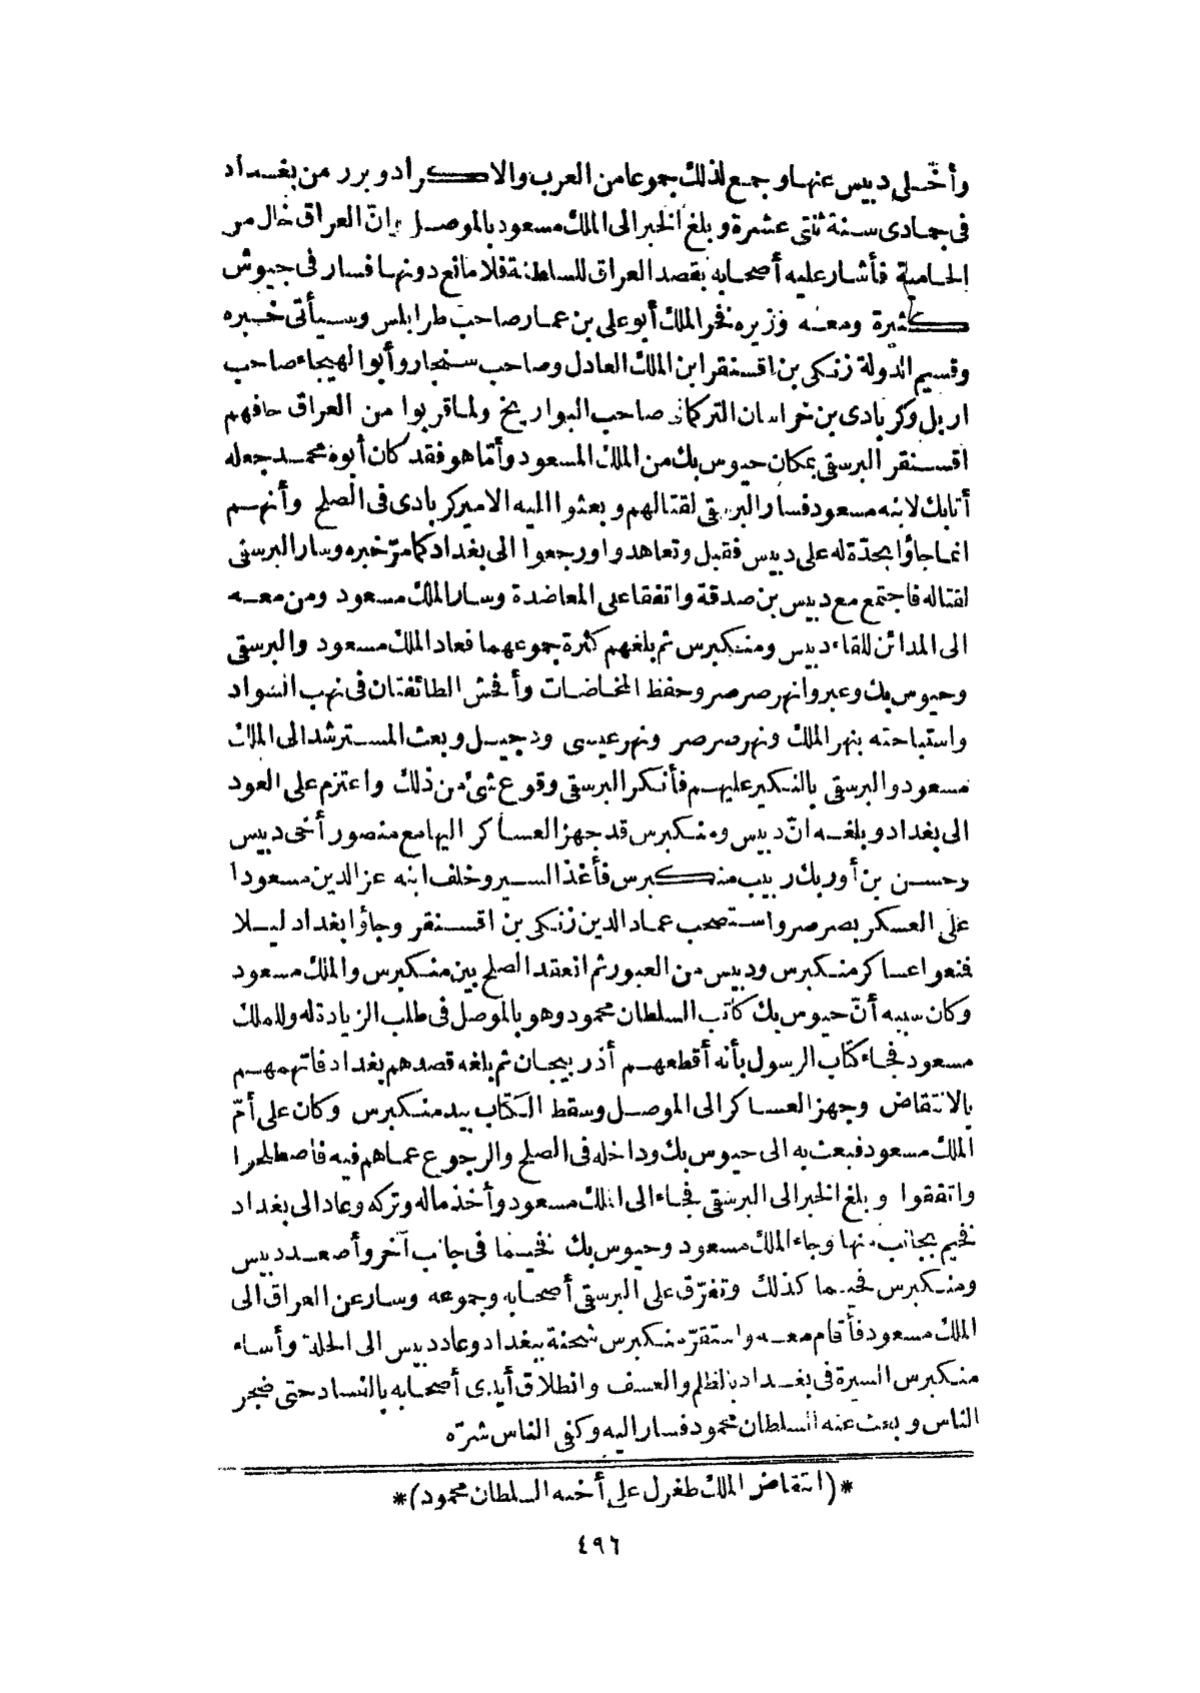 وأخلى دبيس عنها وجمع لذلك جموعا من العرب والاكراد وبرز من بغداد
فى جمادى سنة ثنتى عشرة وبلغ الخبر الى الملك مسعود بالموصل وانّ العراق خال من
الحامية فأشار عليه أصحابه بقصد العراق للسلطنة فلا مانع دونها فسار فى جيوش
كثيرة ومعه وزيره فخر الملك أبو على بن عمار صاحب طرابلس وسيأتى خبره
وقسيم الدولة زنكى بن اقسنقر ابن الملك العادل وصاحب سنجار وأبو الهيجاء صاحب
اربل وكرباوى بن خراسان التركمانى صاحب البواريخ ولما قربوا من العراق خافهم
اقسنقر البرسقى بمكان حيوس بك من الملك المسعود وأمّا هو فقد كان أبوه محمد جعله
أتابك لابنه مسعود فسار البرسقى لقتالهم وبعثوا اليه الامير كرباوى فى الصلح وأنهم
انما جاؤا بحدّة له على دبيس فقبل وتعاهدوا ورجعوا الى بغداد كما مرّ خبره وسار البرسقى
لقتاله فاجتمع مع دبيس بن صدقة واتفقا على المعاضدة وسار الملك مسعود ومن معه
الى المدائن للقاء دبيس ومنكبرس ثم بلغهم كثرة جموعهما فعاد الملك مسعود والبرسقى
وحيوس بك وعبروا نهر صرصر وحفظ المخاضات وأفحش الطائفتان فى نهب السواد
واستباحته بنهر الملك ونهر صرصر ونهر عيسى ودجيل وبعث المسترشد الى الملك
مسعود والبرسقى بالنكير عليهم فأنكر البرسقى وقوع شئ من ذلك واعتزم على العود
الى بغداد وبلغه انّ دبيس ومنكبرس قد جهز العساكر اليها مع منصور أخى دبيس
وحسن بن أوربك ربيب منكبرس فأغذ السير وخلف ابنه عز الدين مسعودا
على العسكر بصرصر واستصحب عماد الدين زنكى بن اقسنقر وجاؤا بغداد ليلا
فنعوا عساكر منكبرس ودبيس من العبور ثم انعقد الصلح بين منكبرس والملك مسعود
وكان سببه أنّ حيوس بك كاتب السلطان محمود وهو بالموصل فى طلب الزيادة له وللملك
مسعود فجاء كتاب الرسول بأنه أقطعهم أذربيجان ثم بلغه قصدهم بغداد فاتهمهم
بالانتقاض وجهز العساكر الى الموصل وسقط الكتاب بيد منكبرس وكان على أمّ
الملك مسعود فبعث به الى حيوس بك وداخله فى الصلح والرجوع عماهم فيه فاصطلحوا
واتفقوا وبلغ الخبر الى البرسقى فجاء الى الملك مسعود وأخذ ماله وتركه وعاد الى بغداد
فخيم بجانب منها وجاء الملك مسعود وحيوس بك فخيما فى جانب آخر وأصعد دبيس
ومنكبرس فخيما كذلك وتفرّق على البرسقى أصحابه وجموعه وسار عن العراق الى
الملك مسعود فأقام معه واستقرّ منكبرس شحنة ببغداد وعاد دبيس الى الحلة وأساء
منكبرس السيرة فى بغداد بالظلم والعسف وانطلاق أيدى أصحابه بالفساد حتى ضجر
الناس وبعث عنه السلطان محمود فسار اليه وكفى الناس شرّه
*(انتقاض الملك طغرل على أخيه السلطان محمود)*
٤٩٦